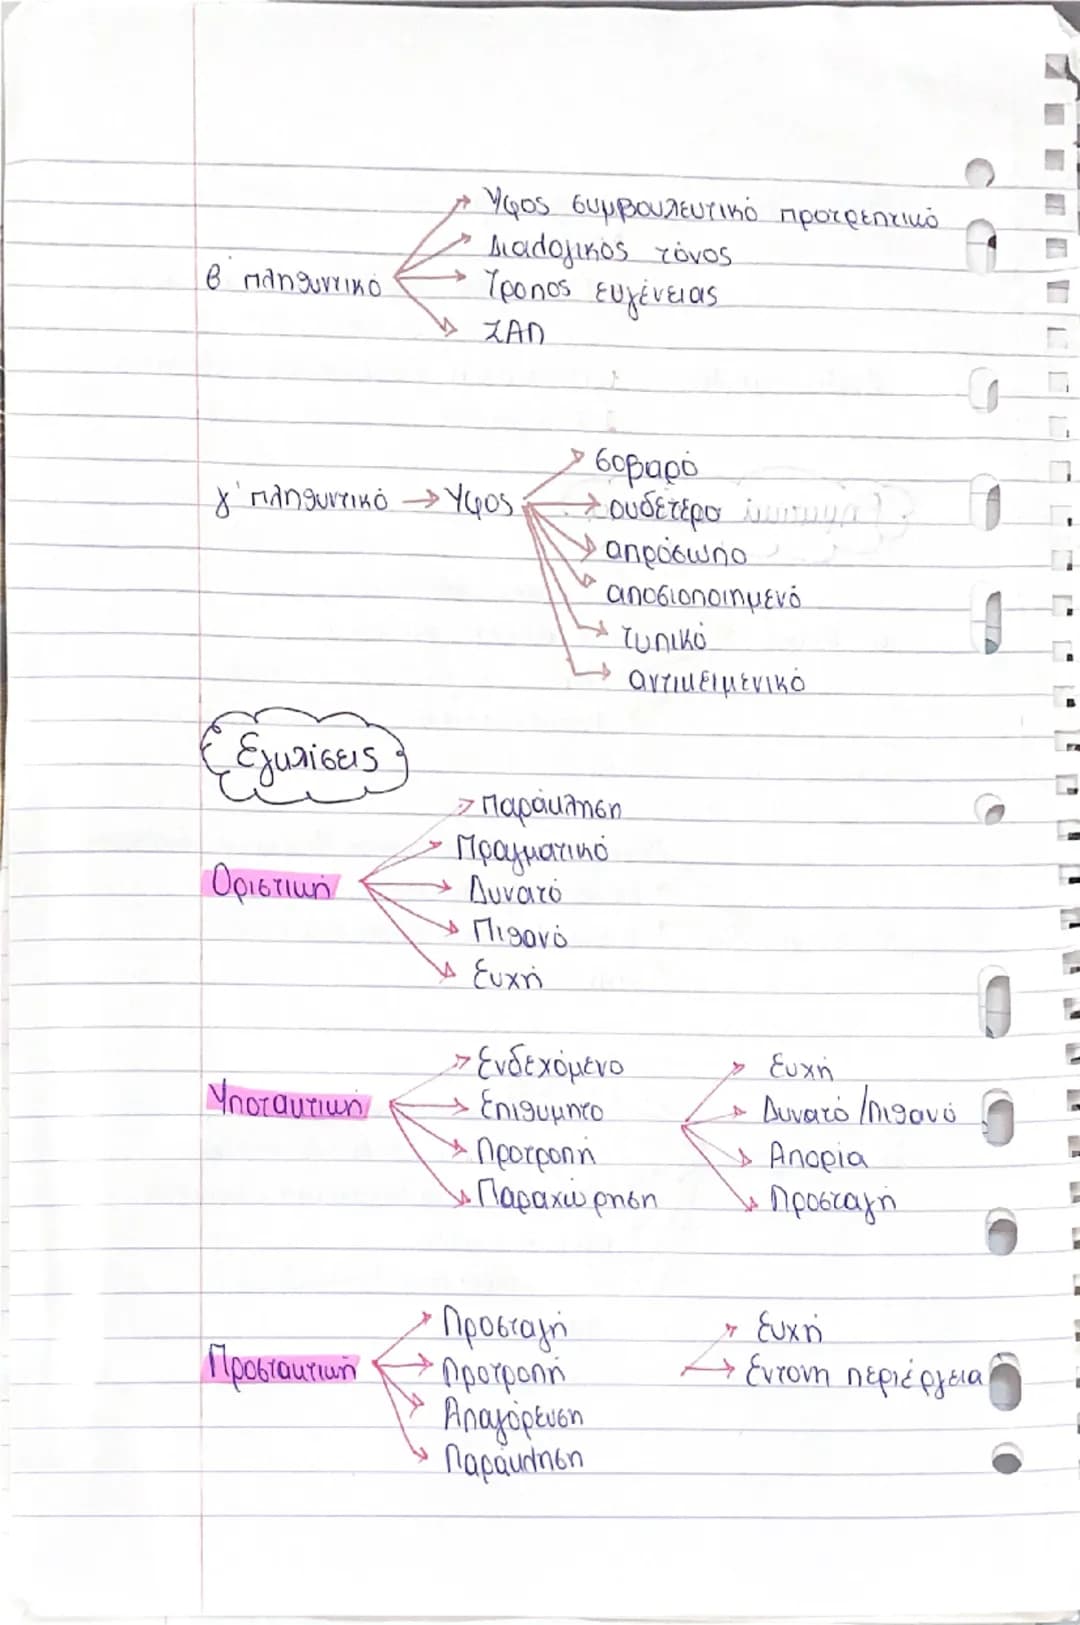 Ύφος συμβουλευτικό προτρεπτικό
Διαλογικός τόνος
β' πληθυντικό
Τροπος ευγένειας
ΖΑΠ
σοβαρό
γ' πληθυντικό → Ύφος
ουδέτερο
απρόσωπο
αποσιοποιημενό
τυπικό
αντικειμενικό
Εγκλίσεις
Παράκληση
Πραγματικό
Οριστική
Δυνατό
Πιθανό
Ευχή
Ενδεχόμενο
Ευχή
Υποτακτική
Επιθυμητο
Δυνατό /πιθανό
Προτροπή
Απορία
Παραχώρηση
Προσταγή
Προσταγή
Ευχή
Προστακτική
Προτροπή
Έντονη περιέργεια
Απαγόρευση
Παράκληση